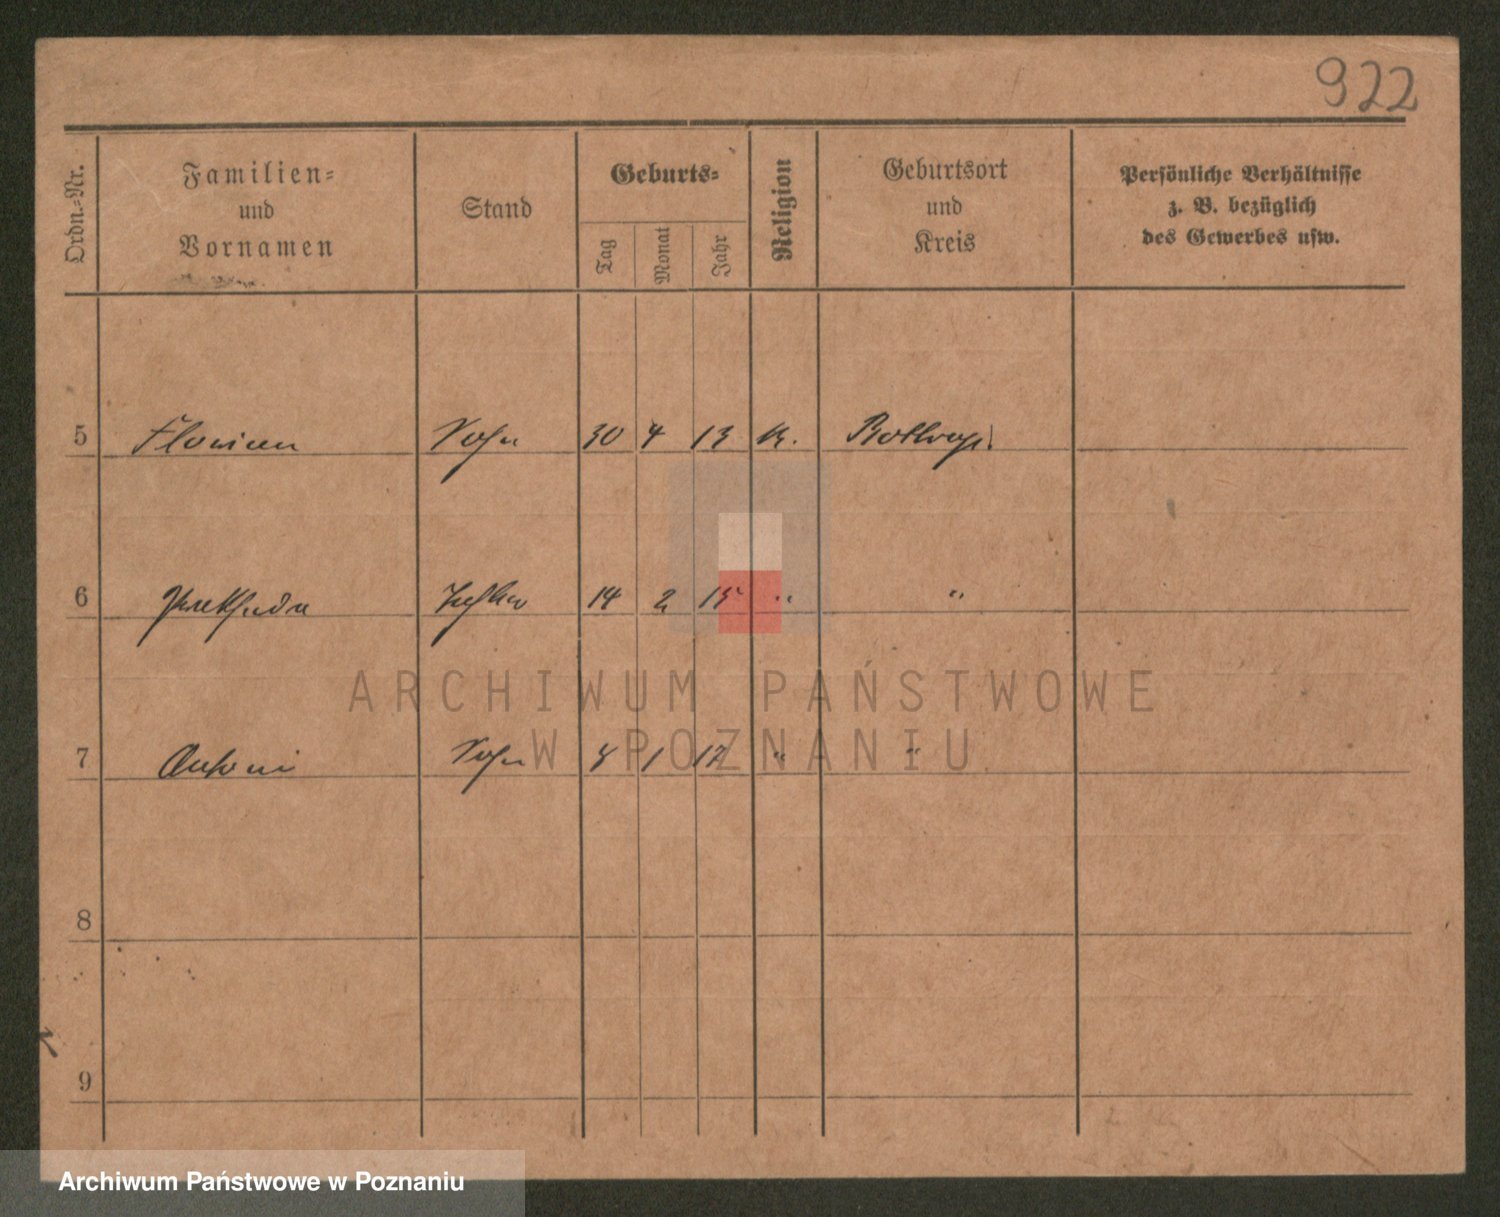 922
Ordn.-Nr.
Familien-
und
Vornamen
Stand
Geburts-
Tag
Monat
Jahr
Religion
Geburtsort
und
Kreis
Persönliche Verhältnisse
z. B. bezüglich
des Gewerbes usw.
5 Florian Sohn 30 4 13 K. Bottrop
6 Tochter 14 2 15 " "
7 Antoni Sohn 8 1 17 " "
8
9
ARCHIWUM PAŃSTWOWE
W POZNANIU
Archiwum Państwowe w Poznaniu